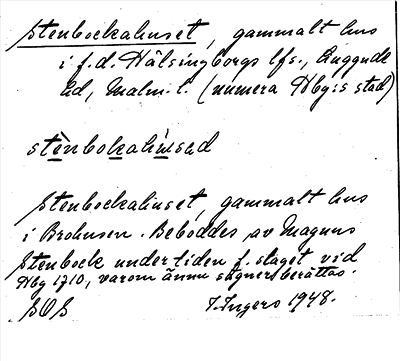 Stenbockahuset, gammalt hus
i f.d. Hälsingborgs lfs., Luggude
hd, Malm. l. (numera Hbg:s stad)
stènbokahúsad
Stenbockahuset, gammalt hus
i Brohusen. Beboddes av Magnus
Stenbock under tiden f. slaget vid
Hbg 1710, varom ännu sägner berättas.
I. Ingers 1948.